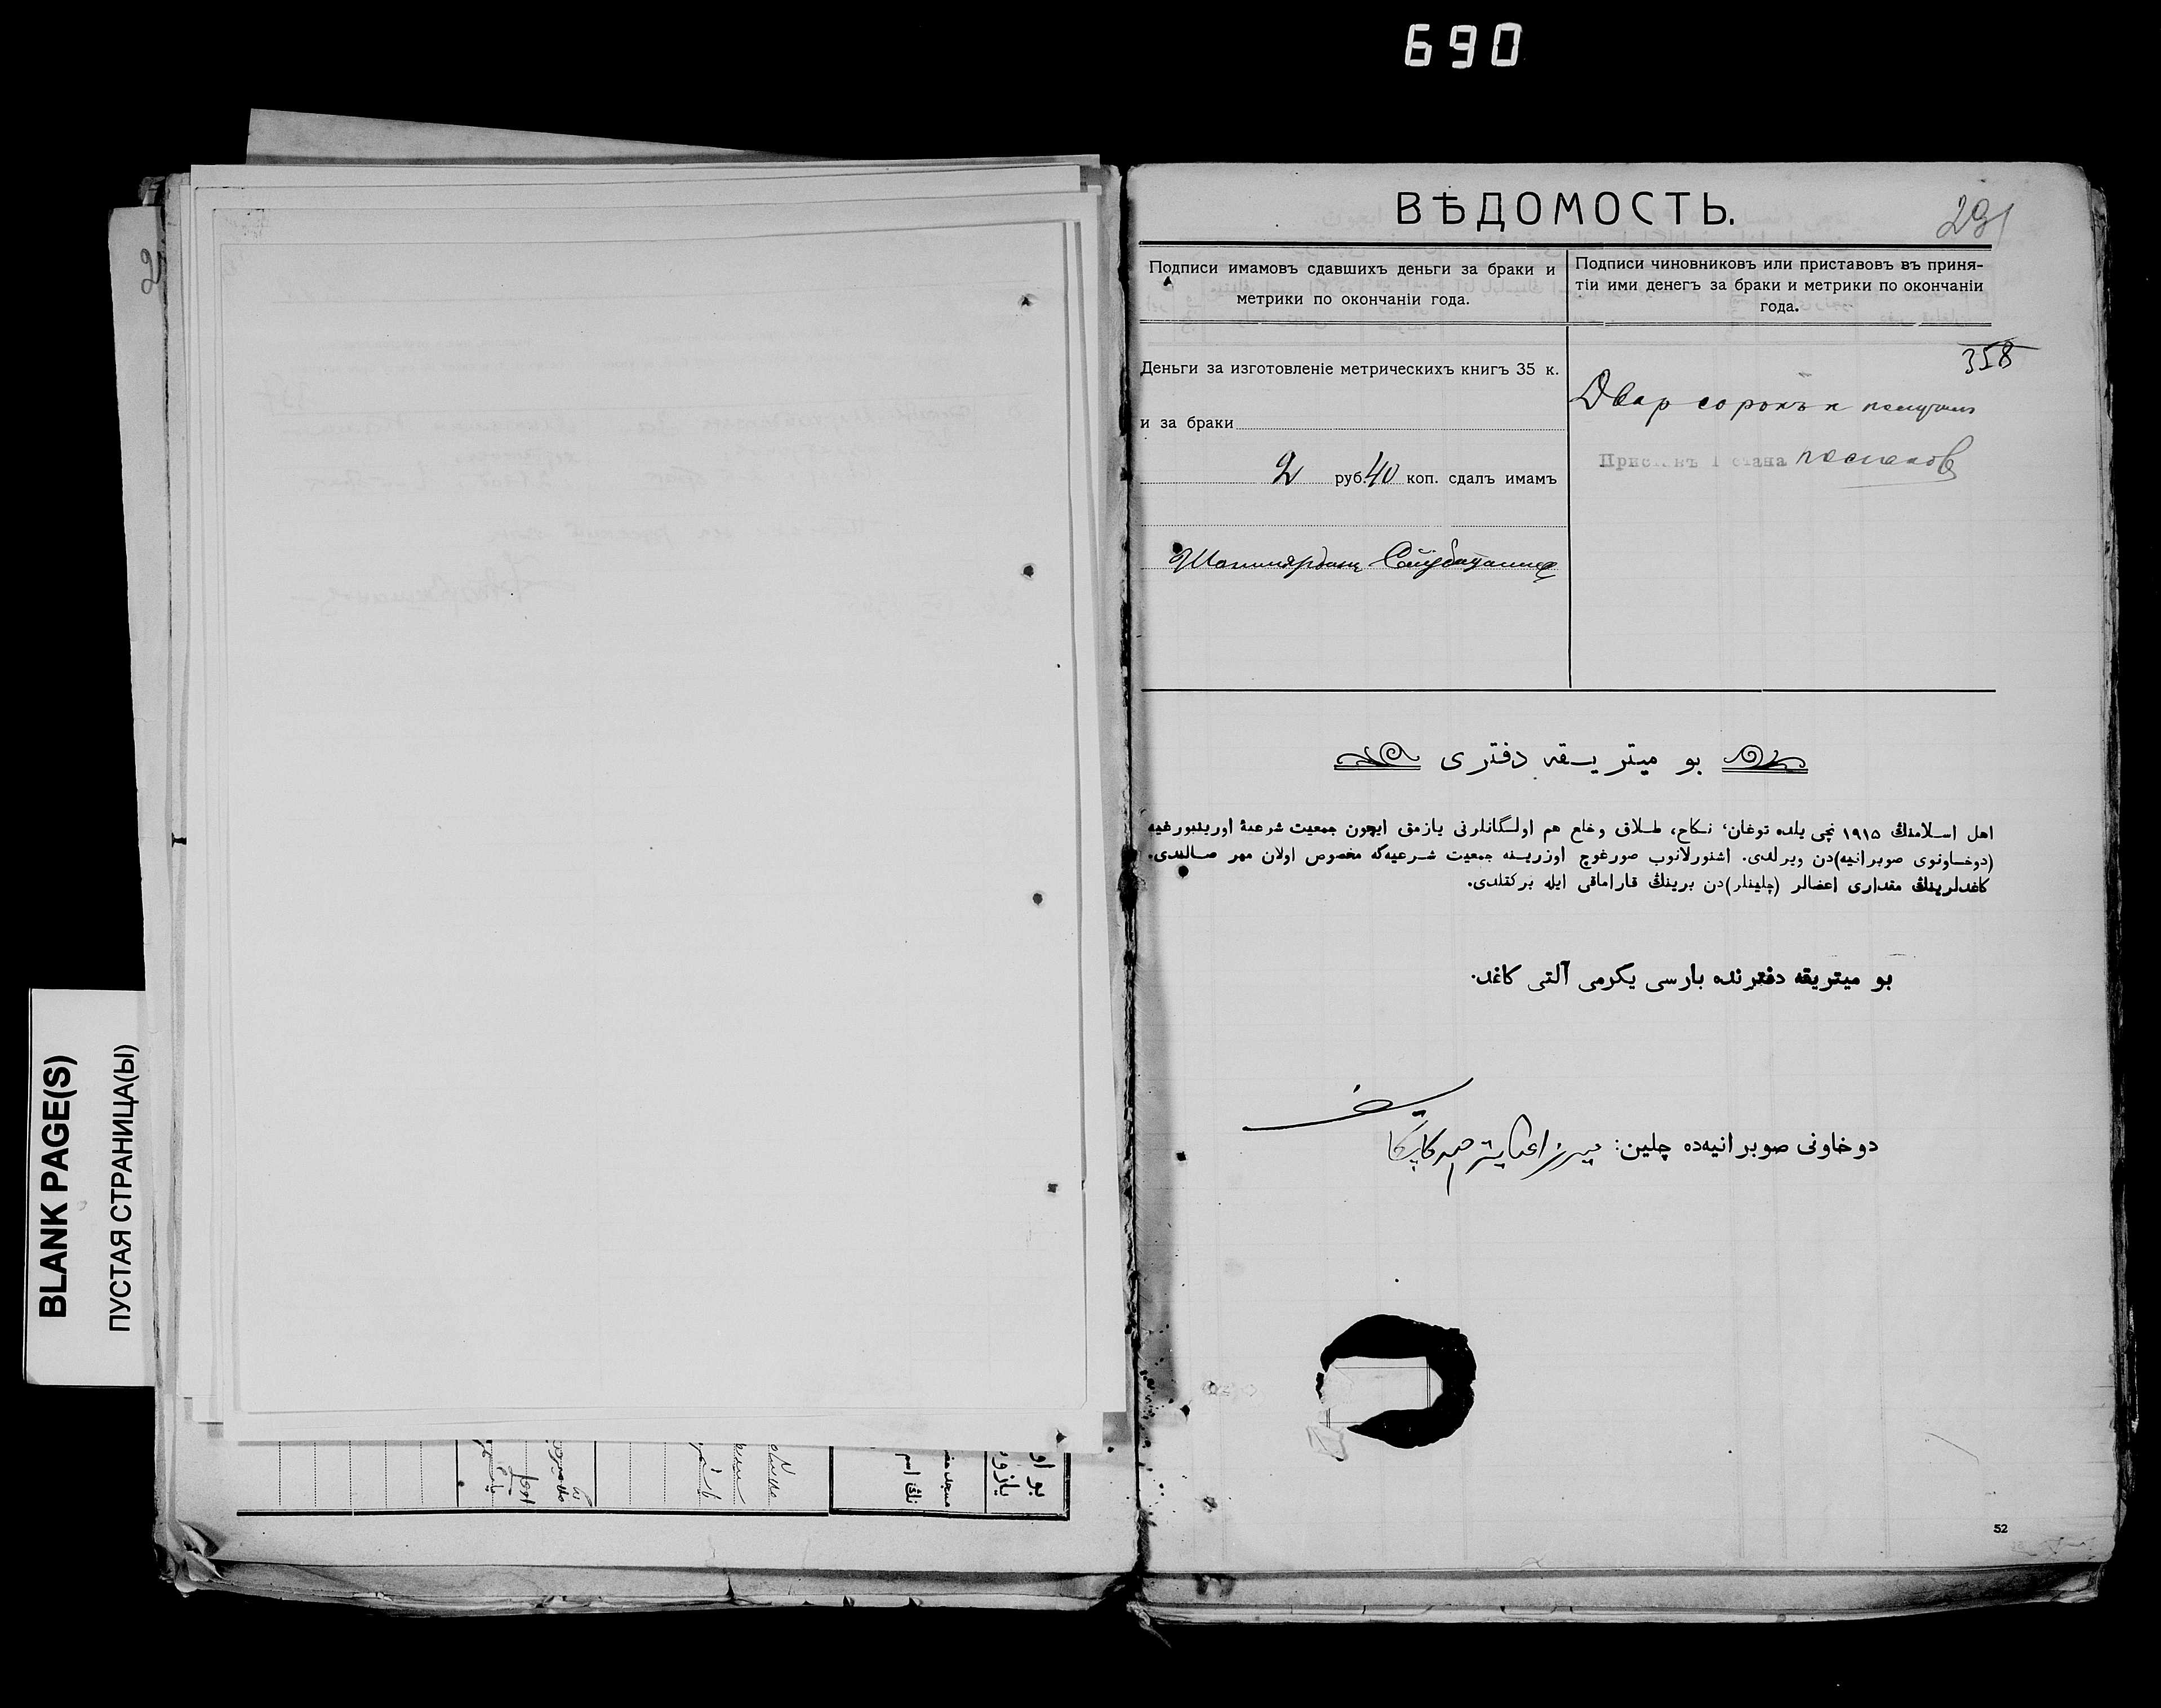 690
BLANK PAGE(S)
ПУСТАЯ СТРАНИЦА(Ы)
بو او
يازو
مسجد
نڭ اسم
ВѢДОМОСТЬ.
291
Подписи имамовъ сдавшихъ деньги за браки и
метрики по окончаніи года.
Подписи чиновниковъ или приставовъ въ приня-
тіи ими денегъ за браки и метрики по окончаніи
года.
358
Деньги за изготовленіе метрическихъ книгъ 35 к.
и за браки
2 руб. 40 коп. сдалъ имамъ
Два р сорокъ к получилъ
Приставъ 1 стана
بو ميتريسقه دفترى
اهل اسلامنڭ ۱۹۱۵ نچى يلده توغان، نكاح، طلاق وخلع هم اولگانلرنى يازمق ايچون جمعيت شرعيۀ اورينبورغيه
(دوخاونوى صوبرانيه)دن ويرلدى. اشنورلانوب صورغوچ اوزرينه جمعيت شرعيه‌گه مخصوص اولان مهر صالندى.
كاغدلرينڭ مقدارى اعضالر (چلينلر)دن برينڭ قاراماقى ايله بركتلدى.
بو ميتريقه دفترنده بارسى يكرمى آلتى كاغد.
دوخاونى صوبرانيه‌ده چلين:
52